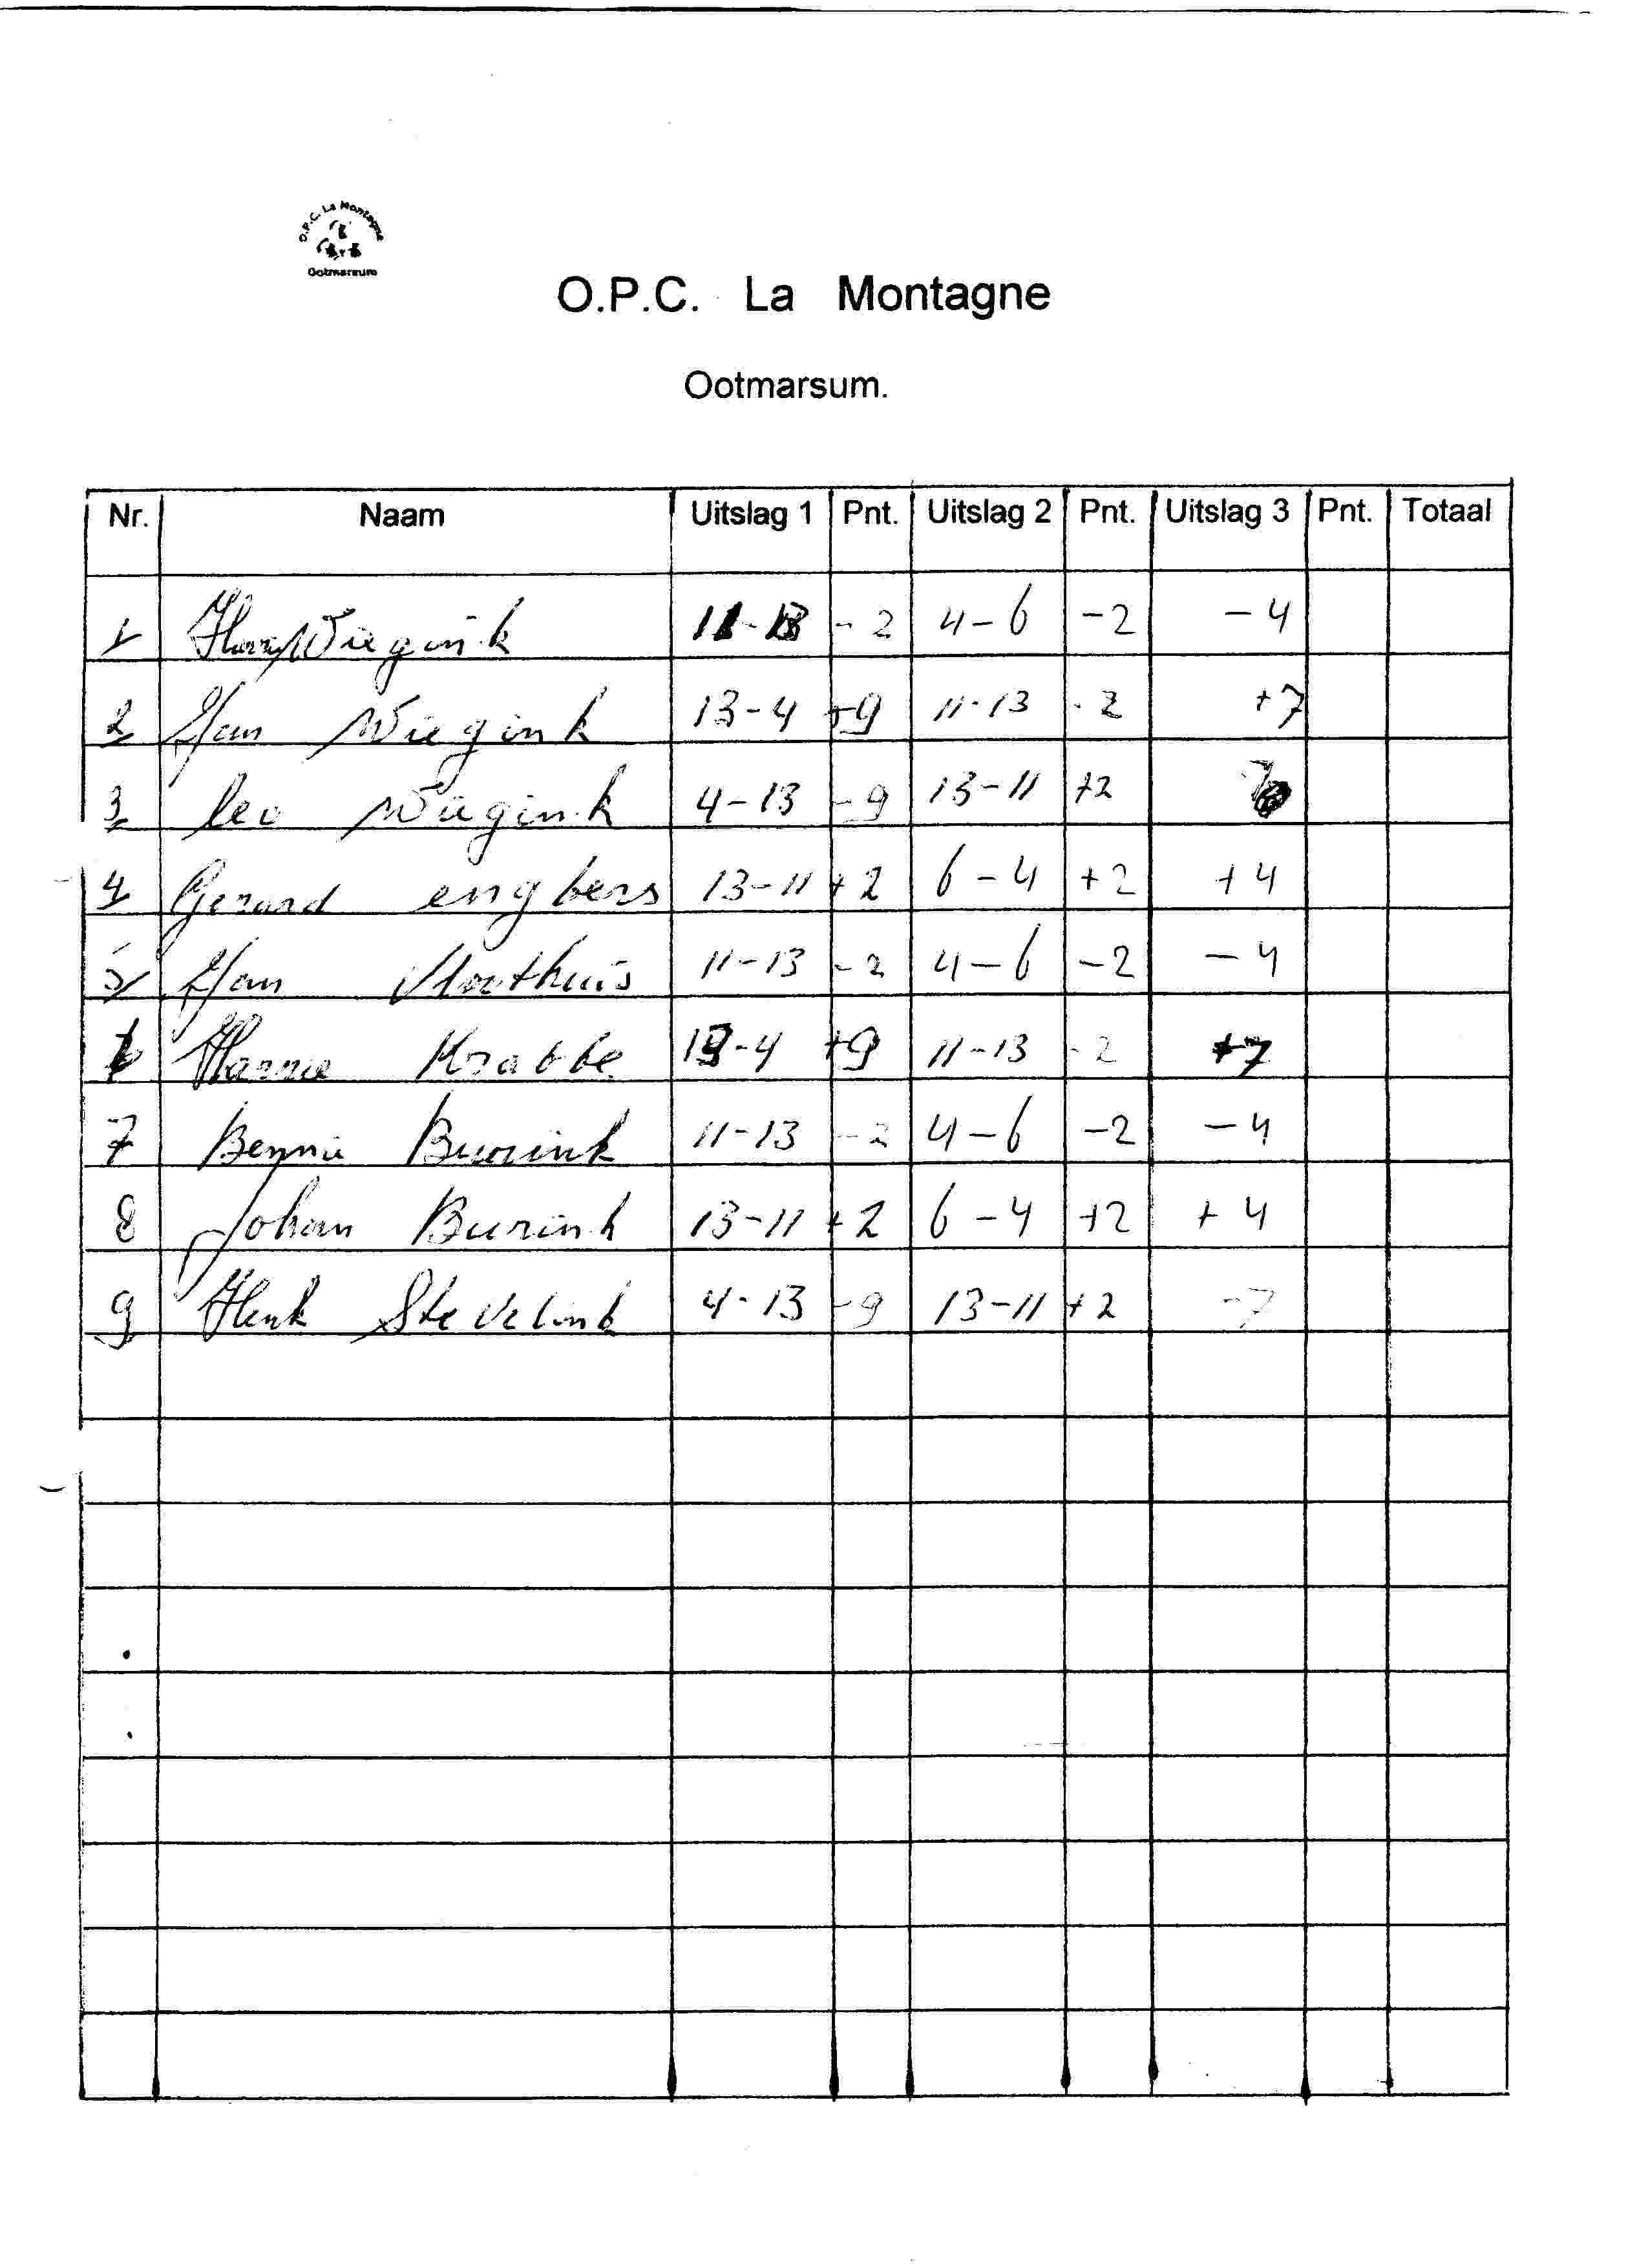 O.P.C. La Montagne
Ootmarsum
O.P.C. La Montagne
Ootmarsum.
Nr. Naam Uitslag 1 Pnt. Uitslag 2 Pnt. Uitslag 3 Pnt. Totaal
1 Harry Wiegink 11-13 -2 4-6 -2 -4
2 Jan Wiegink 13-4 +9 11-13 -2 +7
3 leo Wiegink 4-13 -9 13-11 +2
4 Gerard engbers 13-11 +2 6-4 +2 +4
5 Jan 11-13 -2 4-6 -2 -4
6 Harrie Krabbe 13-4 +9 11-13 -2 +7
7 Bennie Buurink 11-13 -2 4-6 -2 -4
8 Johan Buurink 13-11 +2 6-4 +2 +4
9 Henk Stevelink 4-13 -9 13-11 +2 -7